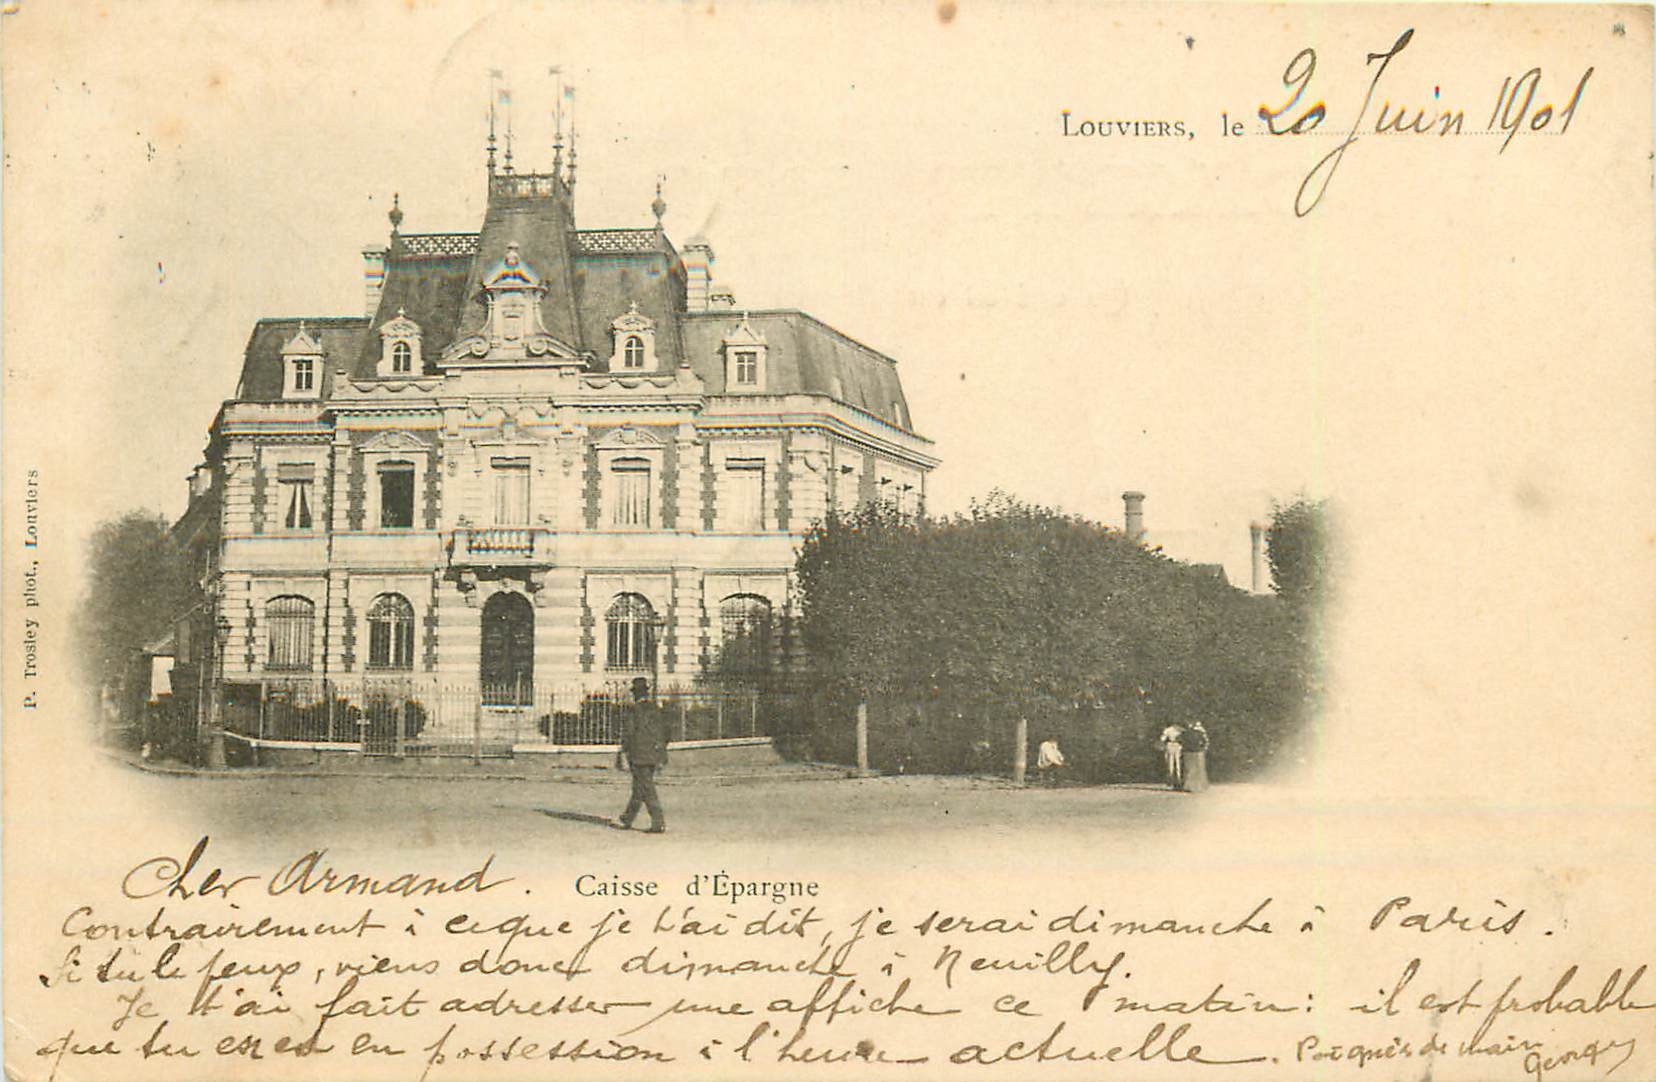 Louviers, le 20 Juin 1901
P. Trosley phot., Louviers
Cher Armand.
Caisse d'Épargne
Contrairement à ce que je t'ai dit, je serai dimanche à Paris.
Si tu le peux, viens donc dimanche à Neuilly.
Je t'ai fait adresser une affiche ce matin: il est probable
que tu es en possession à l'heure actuelle. Poignés de main
Georges